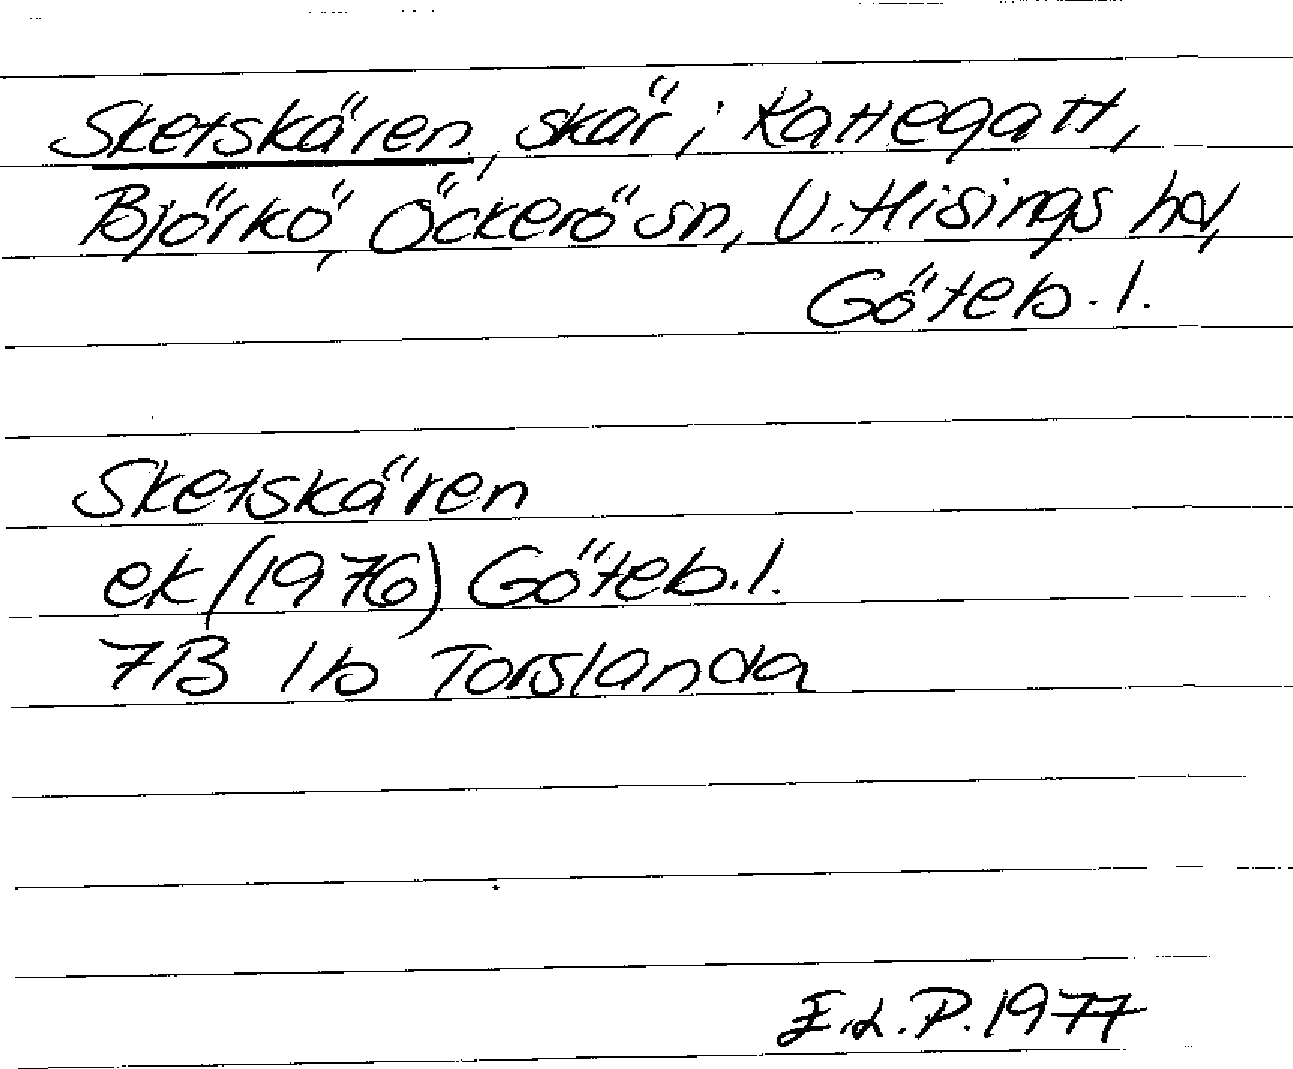 Sketskären, skär i Kattegatt,
Björkö, Öckerö sn, V. Hisings hd,
Göteb. l.
Sketskären
ek (1976) Göteb. l.
7B 1b Torslanda
E.L.P. 1977